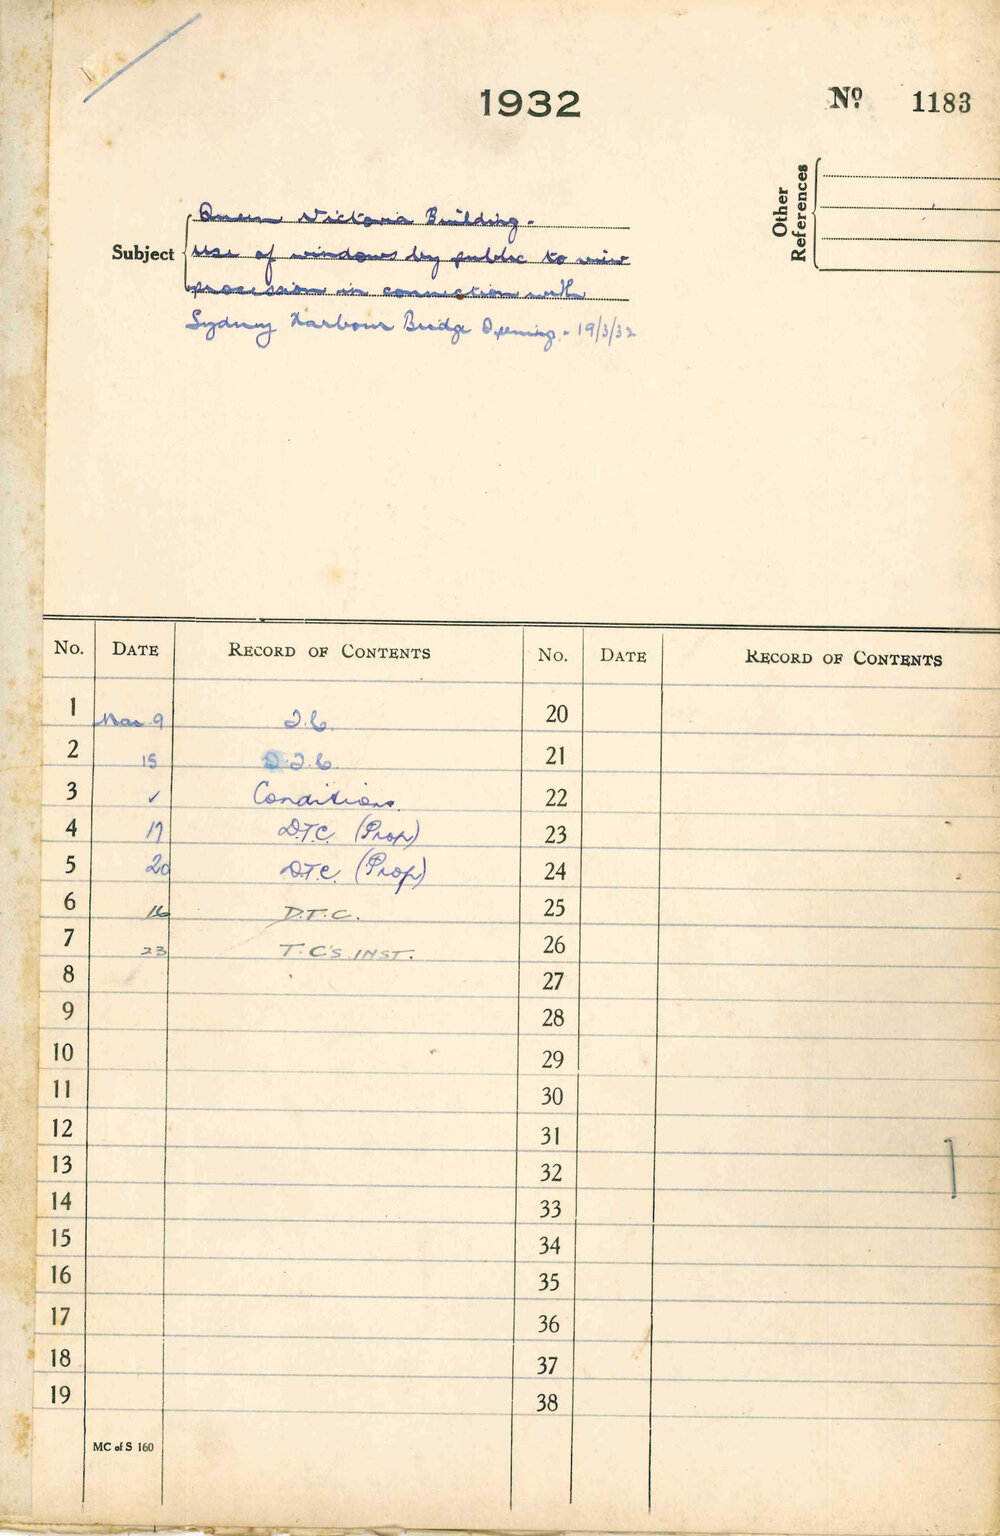 1932
No 1183
Other References
Subject
Queen Victoria Building -
Use of windows by public to view
procession in connection with
Sydney Harbour Bridge Opening. - 19/3/32
No. DATE RECORD OF CONTENTS No. DATE RECORD OF CONTENTS
1 Mar 9 T.C. 20
2 15 D.T.C. 21
3 ✓ Conditions. 22
4 17 D.T.C. (Prop) 23
5 20 D.T.C. (Prop) 24
6 16 D.T.C. 25
7 23 T.C'S INST. 26
8 27
9 28
10 29
11 30
12 31
13 32
14 33
15 34
16 35
17 36
18 37
19 38
MC of S 160